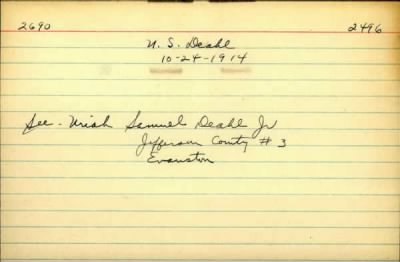 2690 2496
U. S. Deahl
10-24-1914
See - Uriah Samuel Deahl Jr
Jefferson County # 3
Evanston